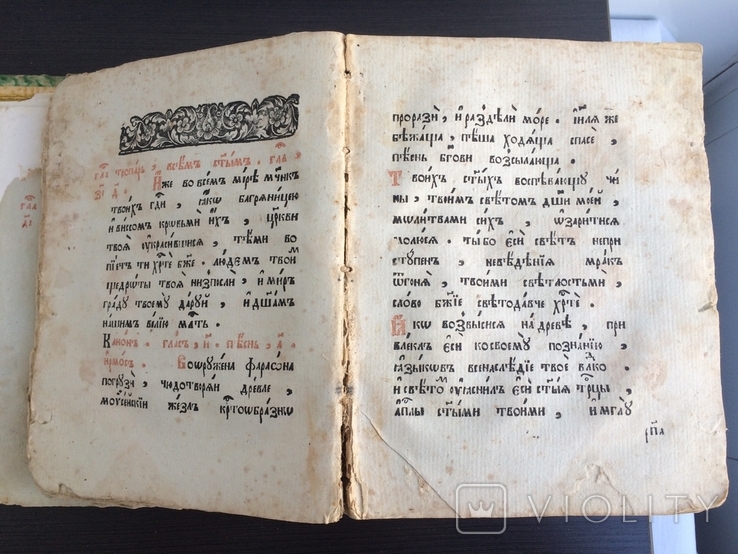 тропарь, всѣмъ ст҃ымъ. гла
д҃. Иже во всемъ мирѣ мч҃нкъ
твоихъ гд҇и, ꙗкѡ багряницею
и виссомъ кровьми ихъ, цр҃кви
твоя ѹкрасившися, тѣми во
пїетъ ти хр҇те бж҃е. людемъ твоимъ
щедроты твоя низпосли, и миръ
граду твоему даруй, и дш҃амъ
нашимъ велїю мл҇ть.
Канон. гласъ, и҃. пѣснь, а҃
ирмос. Воѡружена фараѡна
погрузи, чюдотворяй древле,
моѵсейскїи жезлъ крт҇оѡбразнѡ
гла
д҃:
порази, и раздѣли море. іи҃ля же
бѣжаща, пѣша ходяща спасе,
пѣснь бг҃ови возсылающа.
Твоихъ ст҃ыхъ воспѣвающу чи
ны, твоимъ свѣтомъ дш҃и моей,
мѡлитвами сихъ, ѡзаритися
молюся. ты бо еси свѣтъ непри
ступенъ, невѣдѣнїя мракъ
ѿгоняя, твоими свѣтлостьми,
слово бж҃їе свѣтодавче хр҇те.
Ꙗкѡ возвысися на древѣ, при
влеклъ еси ко своему познанїю,
языковъ все наслѣдїе твое влд҇ко.
и свѣтомъ ѹяснилъ еси ст҃ыя трц҃ы
апл҇ы ст҃ыми твоими, и мглу
рп҃а
VIOLITY